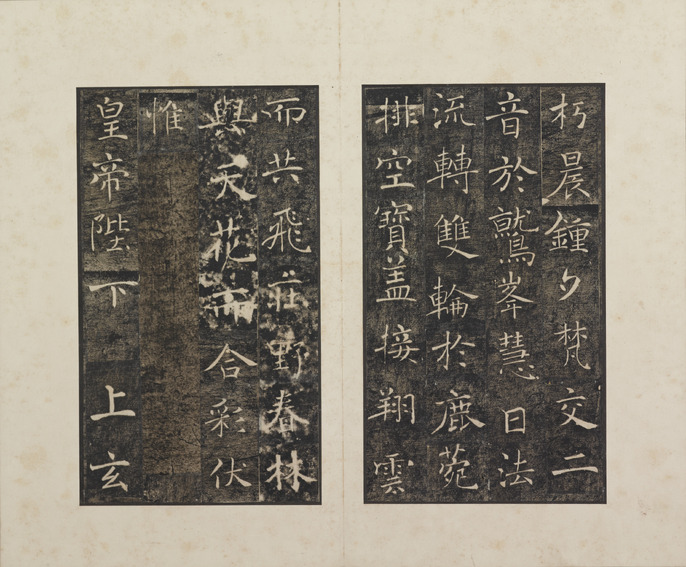 朽晨鍾夕梵交二
音於鷲峯慧日法
流轉雙輪於鹿菀
排空寶盖接翔雲
而共飛莊野春林
與天花而合彩伏
惟
皇帝陛下上玄